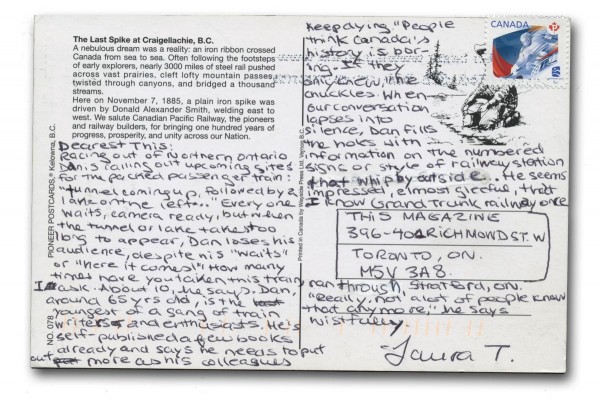 The Last Spike at Craigellachie, B.C.
A nebulous dream was a reality: an iron ribbon crossed
Canada from sea to sea. Often following the footsteps
of early explorers, nearly 3000 miles of steel rail pushed
across vast prairies, cleft lofty mountain passes,
twisted through canyons, and bridged a thousand
streams.
Here on November 7, 1885, a plain iron spike was
driven by Donald Alexander Smith, welding east to
west. We salute Canadian Pacific Railway, the pioneers
and railway builders, for bringing one hundred years of
progress, prosperity, and unity across our Nation.
Dearest This:
Racing out of Northern Ontario
Dan is calling out upcoming sites
for the packed passenger train
"tunnel coming up, followed by a
lake on the left..." Every one
waits, camera ready, but when
the tunnel or lake takes too
long to appear, Dan loses his
audience, despite his "waits"
or "here it comes!" How many
times have you taken this train,
I ask. About 10, he says. Dan,
around 65 yrs old, is the
youngest of a gang of train
writers and enthusiasts. He's
self-published a few books
already and says he needs to put
out more as his colleagues
NO. 078
PIONEER POSTCARDS, Kelowna, B.C.
Printed in Canada by Wayside Press Ltd. Vernon, B.C.
keep dying "People
think Canada's
history is bor-
ing. If they
only knew," he
chuckles. When
our conversation
lapses into
silence, Dan fills
the holes with
information on the numbered
signs or style of railway station
that whip by outside. He seems
impressed, almost gleeful, that
I know Grand Trunk railway once
THIS MAGAZINE
396-401 RICHMOND ST. W
TORONTO, ON.
M5V 3A8.
ran through, Stratford, ON.
"Really, not alot of people know
that anymore," he says
wistfully.
Laura T.
CANADA
P